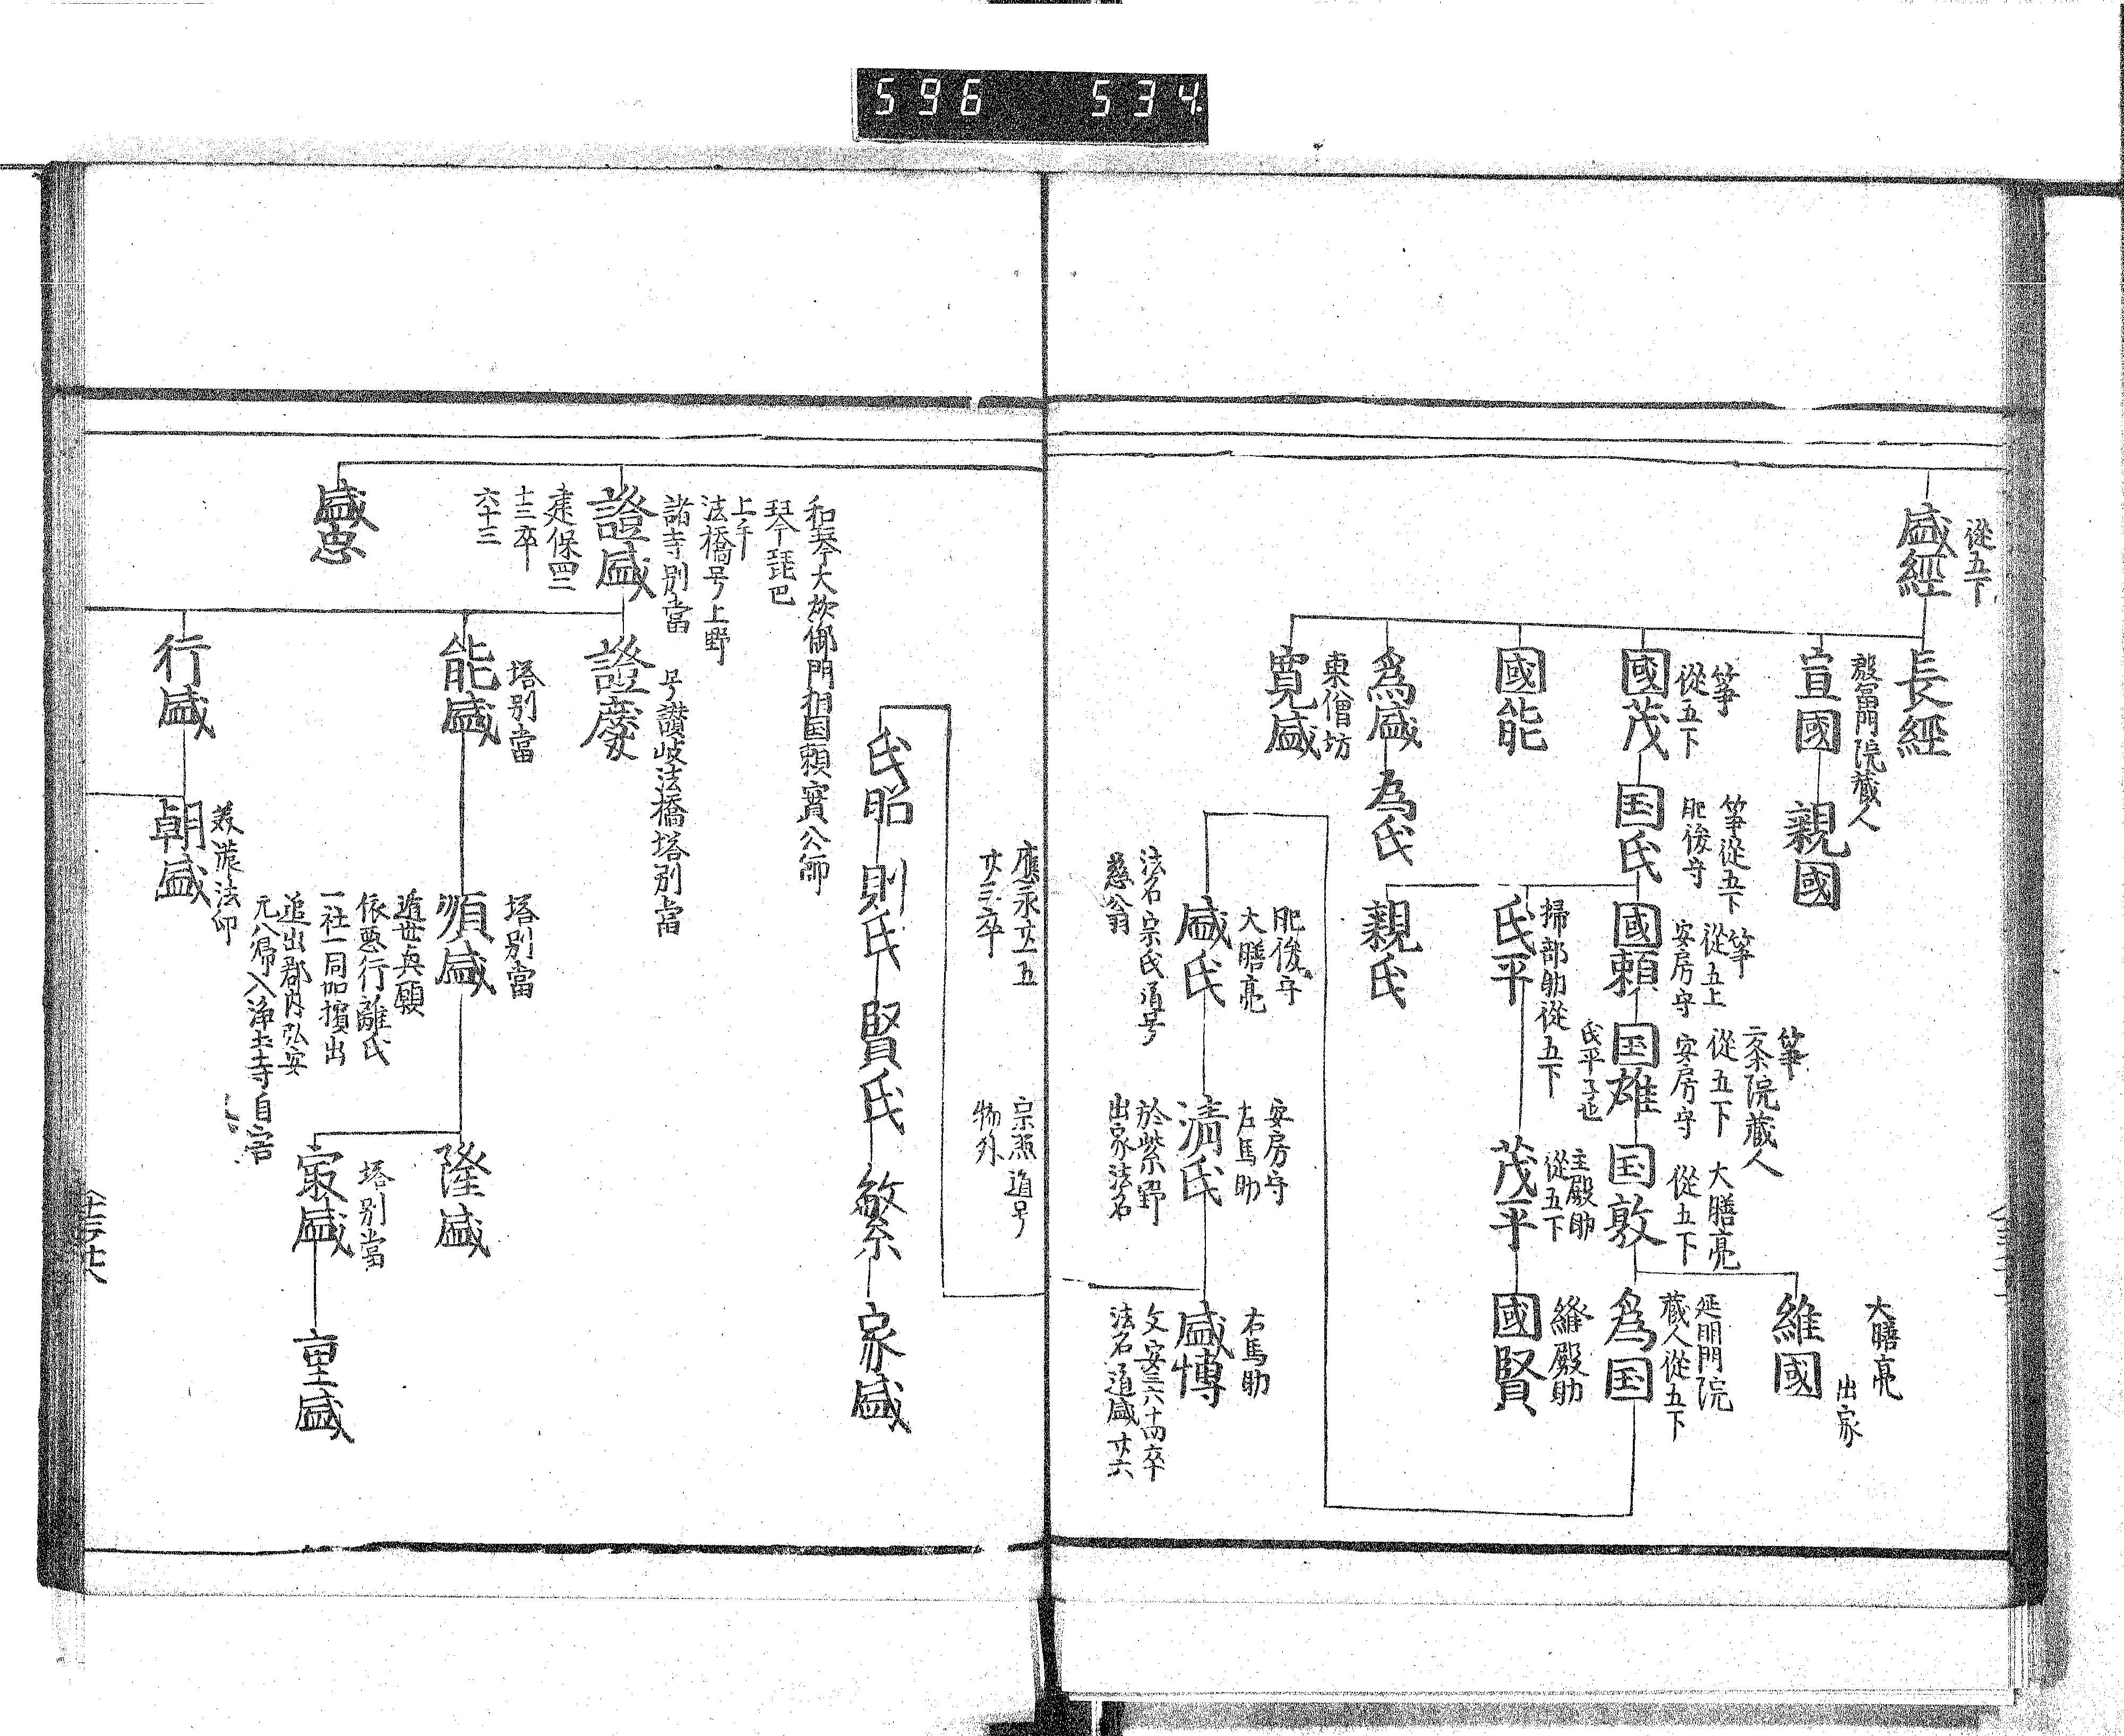 596 534
從五下
盛經
長經
殷富門院蔵人
宣國
親國
箏
從五下
國茂
箏從五下
肥後守
国氏
箏
從五上
安房守
國頼
箏
二条院蔵人
從五下
安房守
氏平子也
国雄
大膳亮
從五下
国敦
大膳亮
出家
維國
延明門院
蔵人從五下
為国
國能
掃部助從五下
氏平
主殿助
從五下
茂平
縫殿助
國賢
為盛
為氏
親氏
東僧坊
寛盛
肥後守
大膳亮
盛氏
法名宗氏道号
慈翁
安房守
左馬助
清氏
於紫野
出家法名
右馬助
盛博
文安三六十四卒
法名道盛廿六
應永廿五
廿三卒
宗照道号
物外
氏昭
則氏
賢氏
繁
家盛
和琴大炊御門相国頼實公師
琴琵巴
上手
法橋号上野
諸寺別當
證盛
建保四二
十三卒
六十三
号讃岐法橋塔別當
證慶
塔別當
能盛
塔別當
順盛
遁世真願
依悪行離氏
一社一同加擯出
追出郡内弘安
元八帰入浄土寺自害
隆盛
塔別當
寂盛
重盛
盛恵
行盛
美濃法印
朝盛